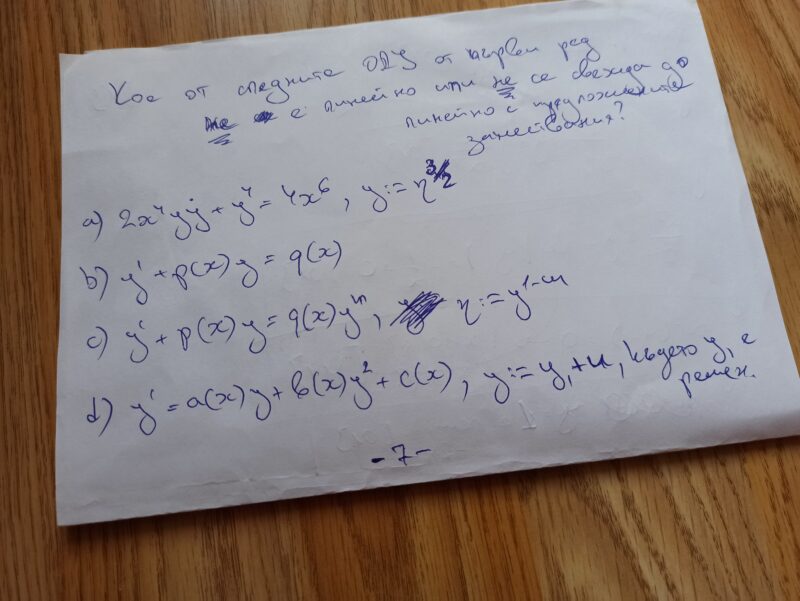 Кое от следните ОДУ от първи ред
не е линейно или не се свежда до
линейно с предложените
замествания?
a) 2x⁴yẏ + y⁴ = 4x⁶, y := η^3/2
b) y' + p(x)y = q(x)
c) y' + p(x)y = q(x)yⁿ, η := y¹⁻ⁿ
d) y' = a(x)y + b(x)y² + c(x), y := y₁ + u, където y₁ е
решен.
- 7 -